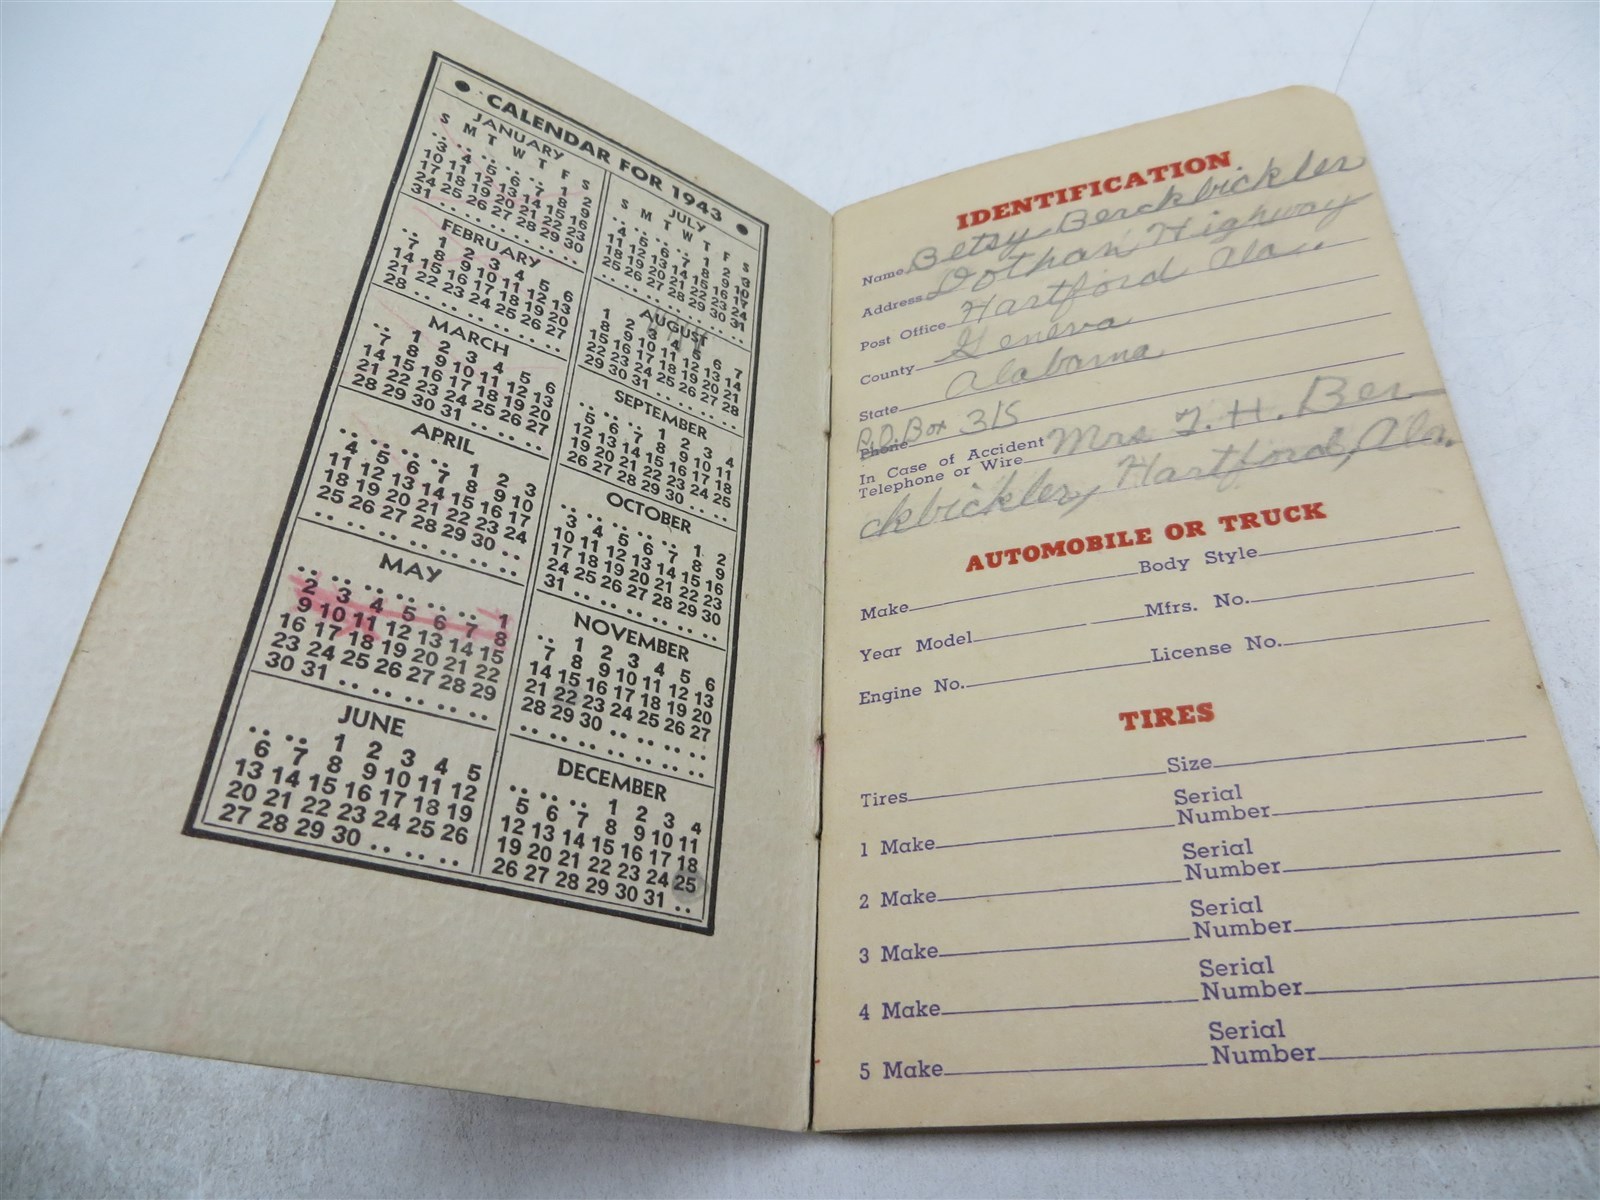 CALENDAR FOR 1943
JANUARY
S M T W T F S
.. .. .. .. .. 1 2
3 4 5 6 7 8 9
10 11 12 13 14 15 16
17 18 19 20 21 22 23
24 25 26 27 28 29 30
31 .. .. .. .. .. ..
FEBRUARY
.. 1 2 3 4 5 6
7 8 9 10 11 12 13
14 15 16 17 18 19 20
21 22 23 24 25 26 27
28 .. .. .. .. .. ..
MARCH
.. 1 2 3 4 5 6
7 8 9 10 11 12 13
14 15 16 17 18 19 20
21 22 23 24 25 26 27
28 29 30 31 .. .. ..
APRIL
.. .. .. .. 1 2 3
4 5 6 7 8 9 10
11 12 13 14 15 16 17
18 19 20 21 22 23 24
25 26 27 28 29 30 ..
MAY
.. .. .. .. .. .. 1
2 3 4 5 6 7 8
9 10 11 12 13 14 15
16 17 18 19 20 21 22
23 24 25 26 27 28 29
30 31 .. .. .. .. ..
JUNE
.. .. 1 2 3 4 5
6 7 8 9 10 11 12
13 14 15 16 17 18 19
20 21 22 23 24 25 26
27 28 29 30 .. .. ..
JULY
S M T W T F S
.. .. .. .. 1 2 3
4 5 6 7 8 9 10
11 12 13 14 15 16 17
18 19 20 21 22 23 24
25 26 27 28 29 30 31
AUGUST
1 2 3 4 5 6 7
8 9 10 11 12 13 14
15 16 17 18 19 20 21
22 23 24 25 26 27 28
29 30 31 .. .. .. ..
SEPTEMBER
.. .. .. 1 2 3 4
5 6 7 8 9 10 11
12 13 14 15 16 17 18
19 20 21 22 23 24 25
26 27 28 29 30 .. ..
OCTOBER
.. .. .. .. .. 1 2
3 4 5 6 7 8 9
10 11 12 13 14 15 16
17 18 19 20 21 22 23
24 25 26 27 28 29 30
31 .. .. .. .. .. ..
NOVEMBER
.. 1 2 3 4 5 6
7 8 9 10 11 12 13
14 15 16 17 18 19 20
21 22 23 24 25 26 27
28 29 30 .. .. .. ..
DECEMBER
.. .. .. 1 2 3 4
5 6 7 8 9 10 11
12 13 14 15 16 17 18
19 20 21 22 23 24 25
26 27 28 29 30 31 ..
IDENTIFICATION
Name Betsy Berckbickler
Address Dothan Highway
Post Office Hartford Ala..
County Geneva
State Alabama
P.O. Box 315
Phone
In Case of Accident
Telephone or Wire Mrs T. H. Ber
ckbickler, Hartford, Ala.
AUTOMOBILE OR TRUCK
Make Body Style
Year Model Mfrs. No.
Engine No. License No.
TIRES
Tires Size
1 Make Serial Number
2 Make Serial Number
3 Make Serial Number
4 Make Serial Number
5 Make Serial Number